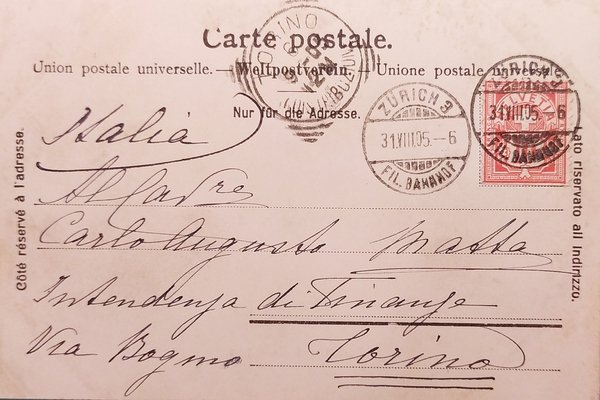 Carte postale.
Union postale universelle. — Weltpostverein. — Unione postale universale
Nur für die Adresse.
TORINO
ZÜRICH 3
31.VIII.05.–6
FIL. BAHNHOF
ZÜRICH 3
HELVETIA
31.VIII.05.–6
FIL. BAHNHOF
Côté réservé à l'adresse.
Lato riservato all' indirizzo.
Italia
Al Cav.re
Carlo Augusto Matta
Intendenza di Finanze
Via Bogino Torino